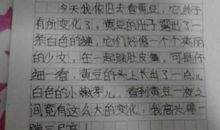 今天我依旧去看黄豆,它终于
有所变化了,黄豆的肚子露出了一
条白色的缝,它们好像一个个美丽
的少女,在一起跳肚皮舞,可是仔
细一看,黄豆的头上长出了一点儿
白色的小嫩芽儿。看到黄豆一夜之
间竟有这么大的变化,我高兴得一
蹦三尺高